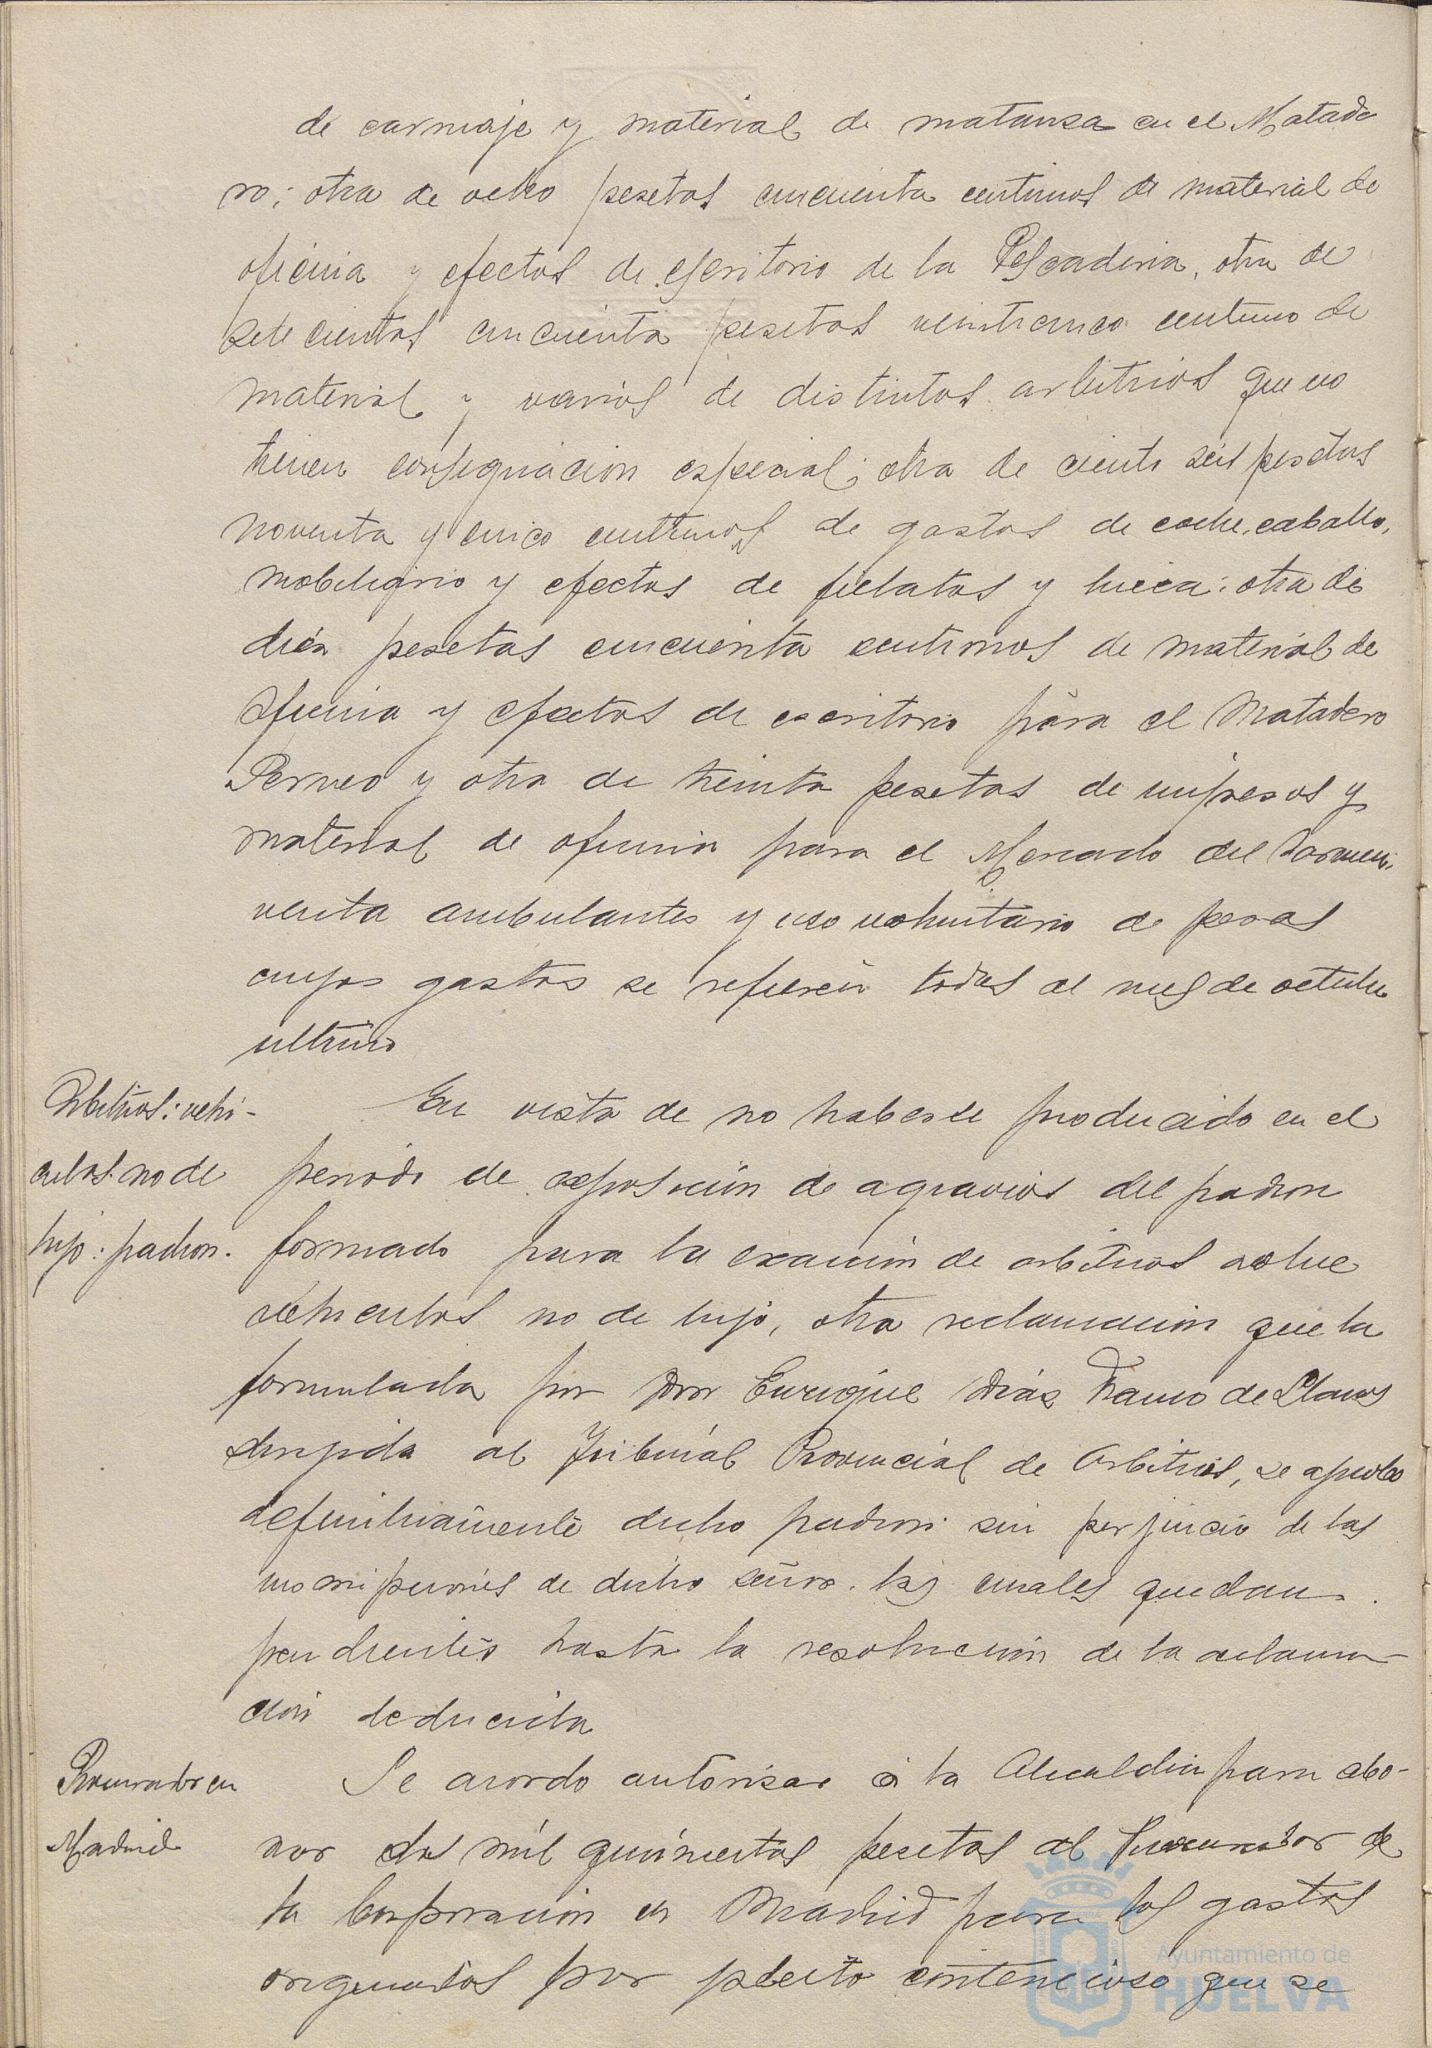 de carruaje y material de matanza en el Matade
ro; otra de ocho pesetas cincuenta centimos de material de
oficina y efectos de escritorio de la Pescaderia, otra de
setecientas cincuenta pesetas veinticinco centimo de
material y varios de distintos arbitrios que no
tienen consignacion especial; otra de ciento seis pesetas
noventa y cinco centimos de gastos de coche, caballo,
mobiliario y efectos de fielatos y : otra de
diez pesetas cincuenta centimos de material de
oficina y efectos de escritorio para el Matadero
Perneo y otra de treinta pesetas de impresos y
material de oficina para el Mercado del Carmen,
venta ambulantes y uso voluntario de pesas
cuyos gastos se refieren todas al mes de octubre
ultimo
Arbitrios: vehi-
culos no de
lujo: padron.
En vista de no haberse producido en el
periodo de exposición de agravios del padron
formado para la exaccion de arbitrios sobre
vehiculos no de lujo, otra reclamacion que la
formulada por Don Enrique Diaz Franco de Llanos
dirigida al Tribunal Provincial de Arbitrios, se aprobo
definitivamente dicho padron sin perjuicio de las
inscripciones de dicho señor. las cuales quedan
pendientes hasta la resolucion de la reclama-
cion deducida
Procurador en
Madrid
Se acordo autorizar a la Alcaldia para abo-
nar dos mil quinientas pesetas al Procurador de
la Corporacion en Madrid para los gastos
originados por pleito contencioso que se
Ayuntamiento de
HUELVA